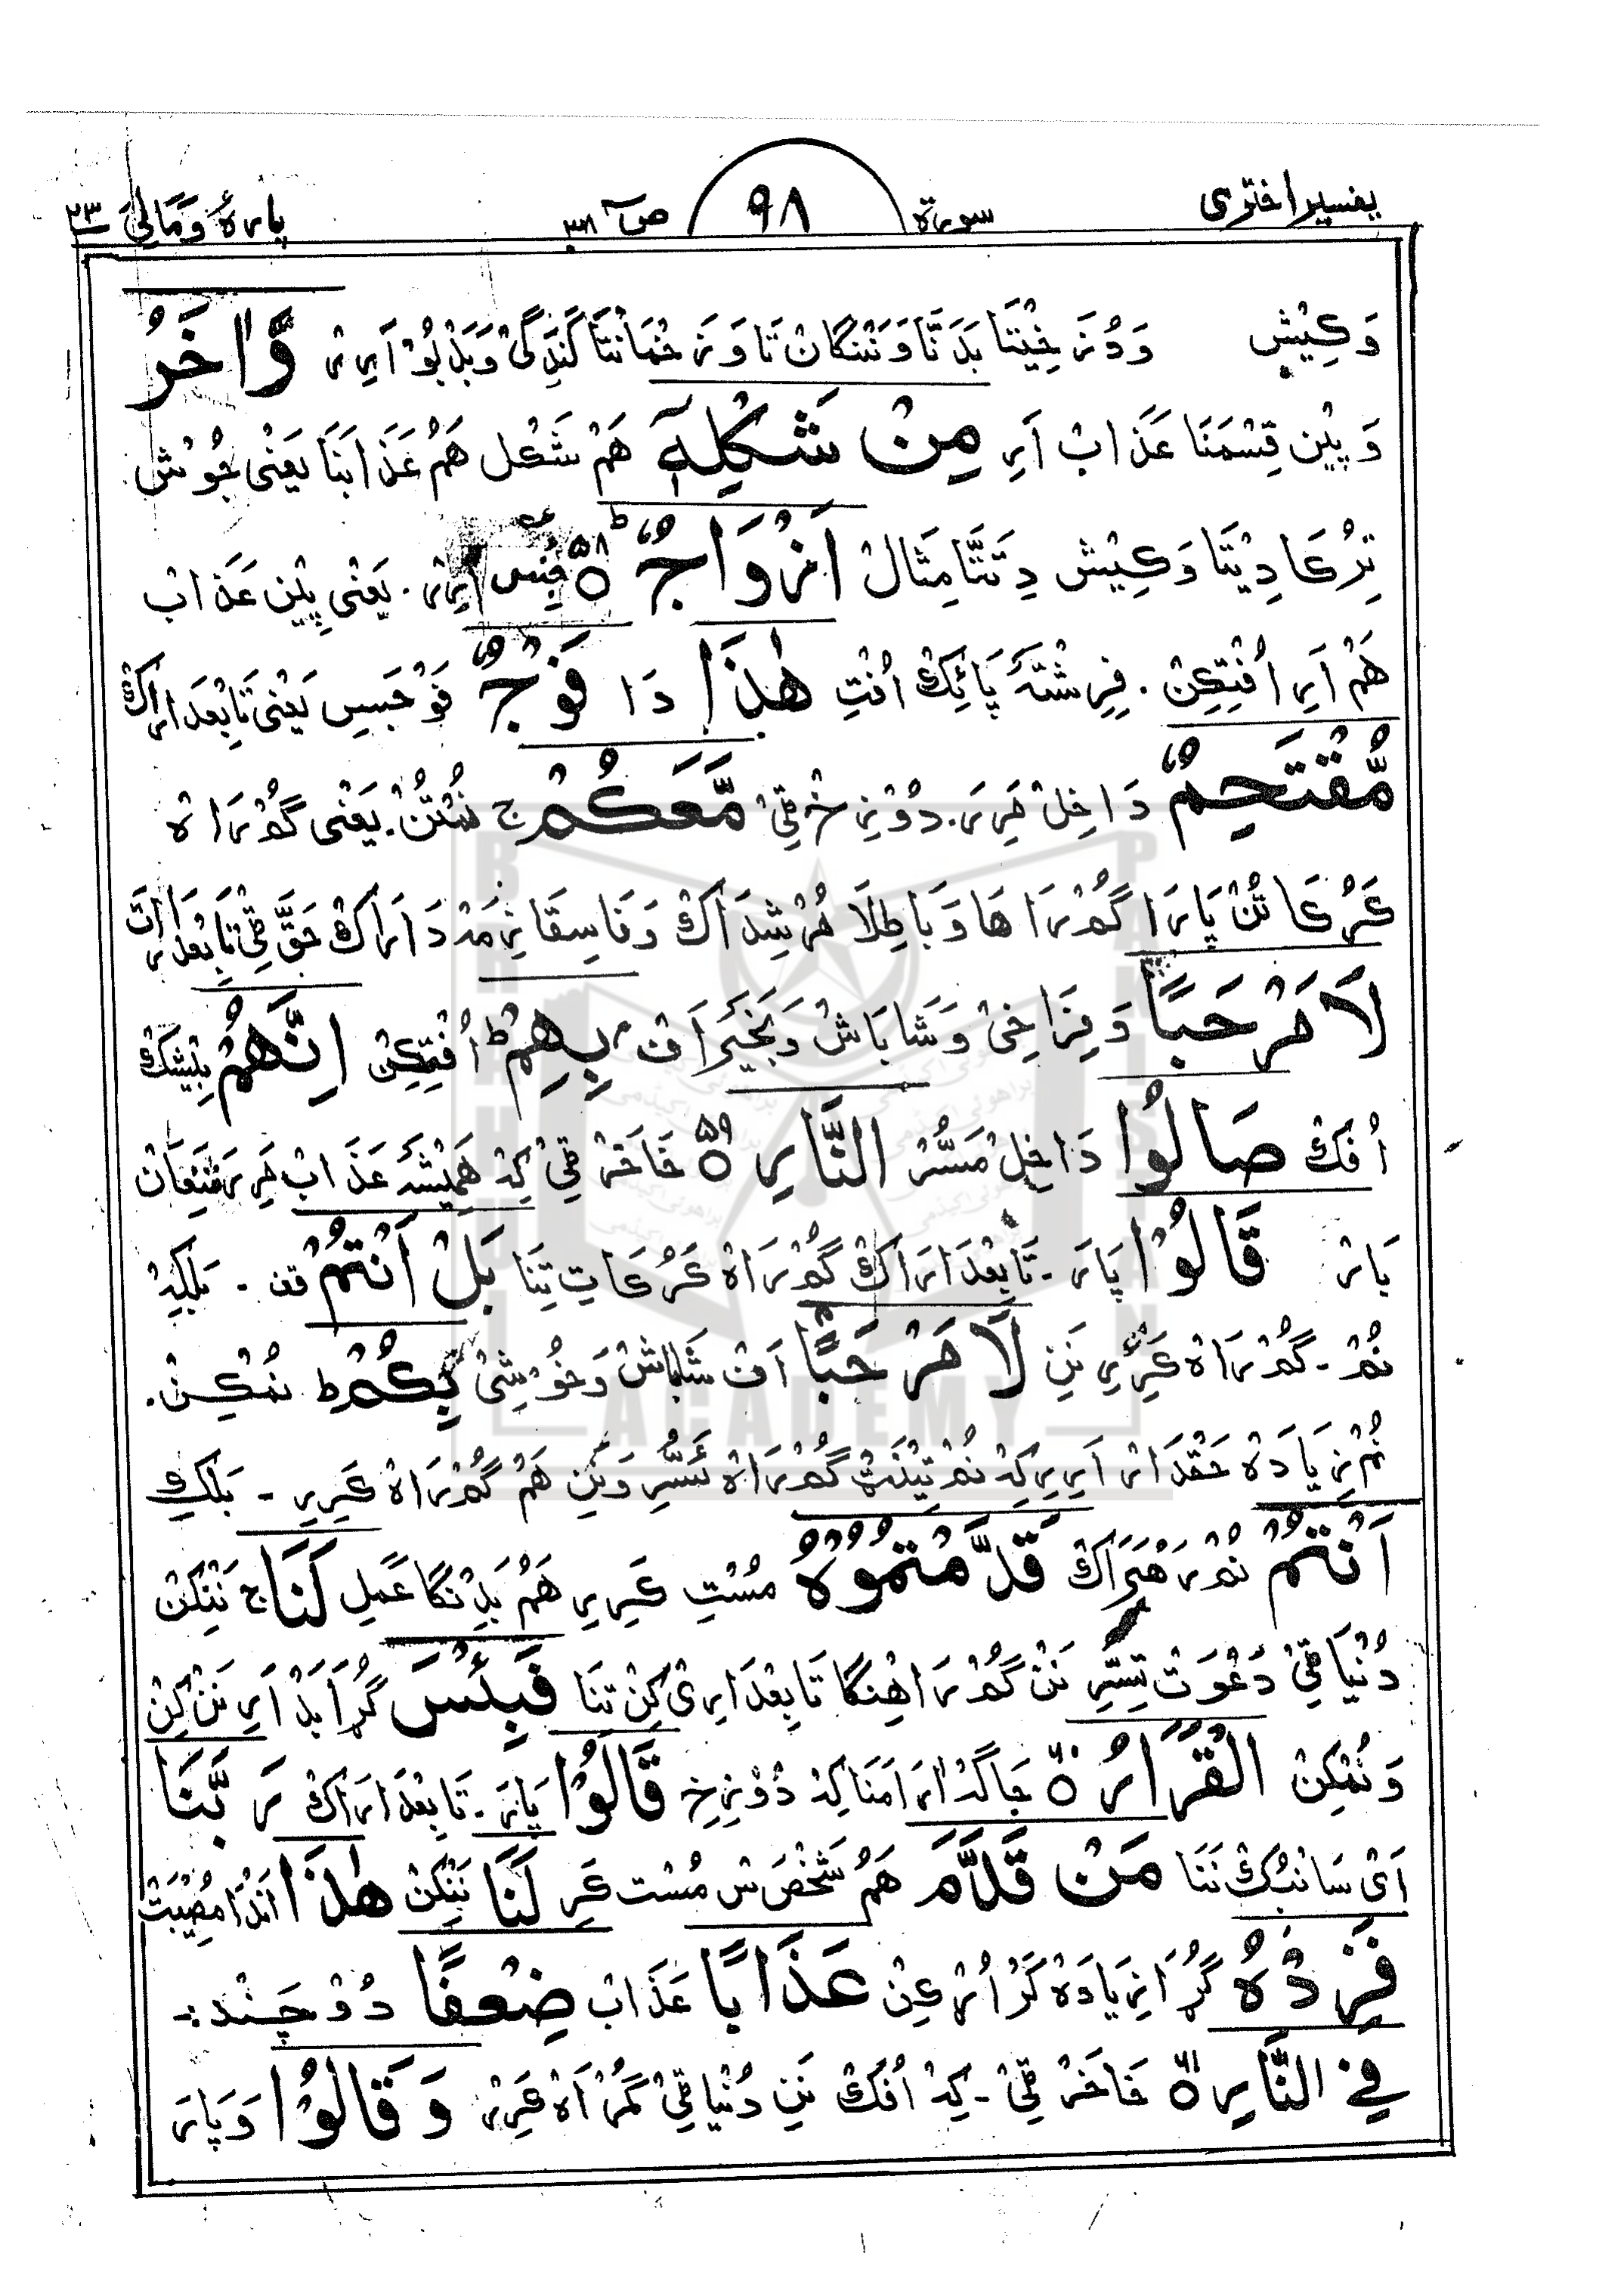 تفسیر اختری سورة ٩٨ صٓ ٣٨ پارهٔ وَمَالِیَ ٢٣
وَکِیْش وَدُنَ خِیْتَا بَدَنَّا وَنَنْگَان تَا وَنَ خْمَانْتَا گَنْدَگیْ وَبَدْبُوْ اَرِیر وَّاٰخَرُ
وَ پِیْن قِسْمَنَا عَذَابْ اَرِ مِنْ شَکْلِهٖۤ هَمْ شَکْل هَمُ عَذَابَنَا یَعْنٖی جُوْش
تِرُکَا دِیْتَا وَکِیْش دِتَتَّا مِثَالْ اَزْوَاجٌ ؕ ٥٨ قِسْ اَرِیر. یَعْنٖی پِیْن عَذَابْ
هَمْ اَرِ اُفْتِکِنْ. فِرِشْتَهْ پَائِکْ اُفْتِ هٰذَا دَا فَوْجٌ فَوْجَسِ یَعْنٖی تَابِعْدَارَاکْ
مُّقْتَحِمٌ دَاخِلْ مَرِیرَ. دُوْزِخْ ٹِیْ مَّعَکُمْ ج نُمْتُنْ. یَعْنٖی گُمْرَاهْ
کَرُکَا تُنْ پَارَا گُمْرَاهَا وَبَاطِلَا مُرْشِدَاکْ وَفَاسِقَا زِمَدْ دَارَاکْ حَقَّ ٹِیْ تَابِعْدَار اَنَّ
لَا مَرْحَبًا وَفِرَاخِیْ وَشَابَاشْ وَبَخَیْر اَفْ بِهِمْ ؕ اُفْتِکِنْ اِنَّهُمْ بِیْشَکْ
اُفَکْ صَالُوا دَاخِلْ مَسُّرْ النَّارِ ٥٩ خَاخَرْ ٹِیْ کِهْ هَمِیْشَهْ عَذَابْ مَرِیرَ
بَارْ قَالُوْا پَارَ - تَابِعْدَارَاکْ گُمْرَاهْ کَرُکَاتِ تِنَا بَلْ اَنْتُمْ قف - بَلْکِهْ
نُمْ - گُمْرَاهْ کَرِّیرِ نَنِ لَا مَرْحَبًا اَفْ شَابَاشْ وَخُوْشِیْ بِکُمْ ؕ نُمْکِنْ.
نُمْ زِیَادَهْ حَقْدَارْ اَرِیرِ کِهْ نُمْ تِیْنَتْ گُمْرَاهْ مَسُّرِ وَنَنِ هَمْ گُمْرَاهْ کَرِیرِ - بَلْکِ
اَنْتُمْ نُمْ رَهْبَرَاکْ قَدَّمْتُمُوْهُ مُسْتِ کَرِیرِ هَمُ بَدِنْگَا عَمَلِ لَنَا ج نَنْکِنْ
دُنْیَا ٹِیْ دَعْوَتْ تِسّرِ نَنْ گُمْرَاهِنْگَا تَابِعْدَارِیْ کِنْ تِنَا فَبِئْسَ گُڑا بَدْ اَرِ نَنْ کِنْ
وَ نُمْکِنْ الْقَرَارُ ٦٠ جَاگَهْ اٰرَامَنَا کِهْ دُوْزِخِ قَالُوْا پَارَ - تَابِعْدَارَاکْ رَبَّنَا
اَیْ سَائِبُکْ نَنَا مَنْ قَدَّمَ هَمُ شَخْصَسْ مُسْت کَرِ لَنَا نَنْکِنْ هٰذَا اَنْدَا مُصِیْبَتْ
فَزِدْهُ گُڑا زِیَادَهْ کَرْ اُرْکِنْ عَذَابًا عَذَابْ ضِعْفًا دُوْ چَنْد :-
فِی النَّارِ ٦١ خَاخَرْ ٹِیْ - کِهْ اُفَکْ نَنِ دُنْیَا ٹِیْ گُمْرَاهْ کَرِرْ وَقَالُوْا وَ پَارَ